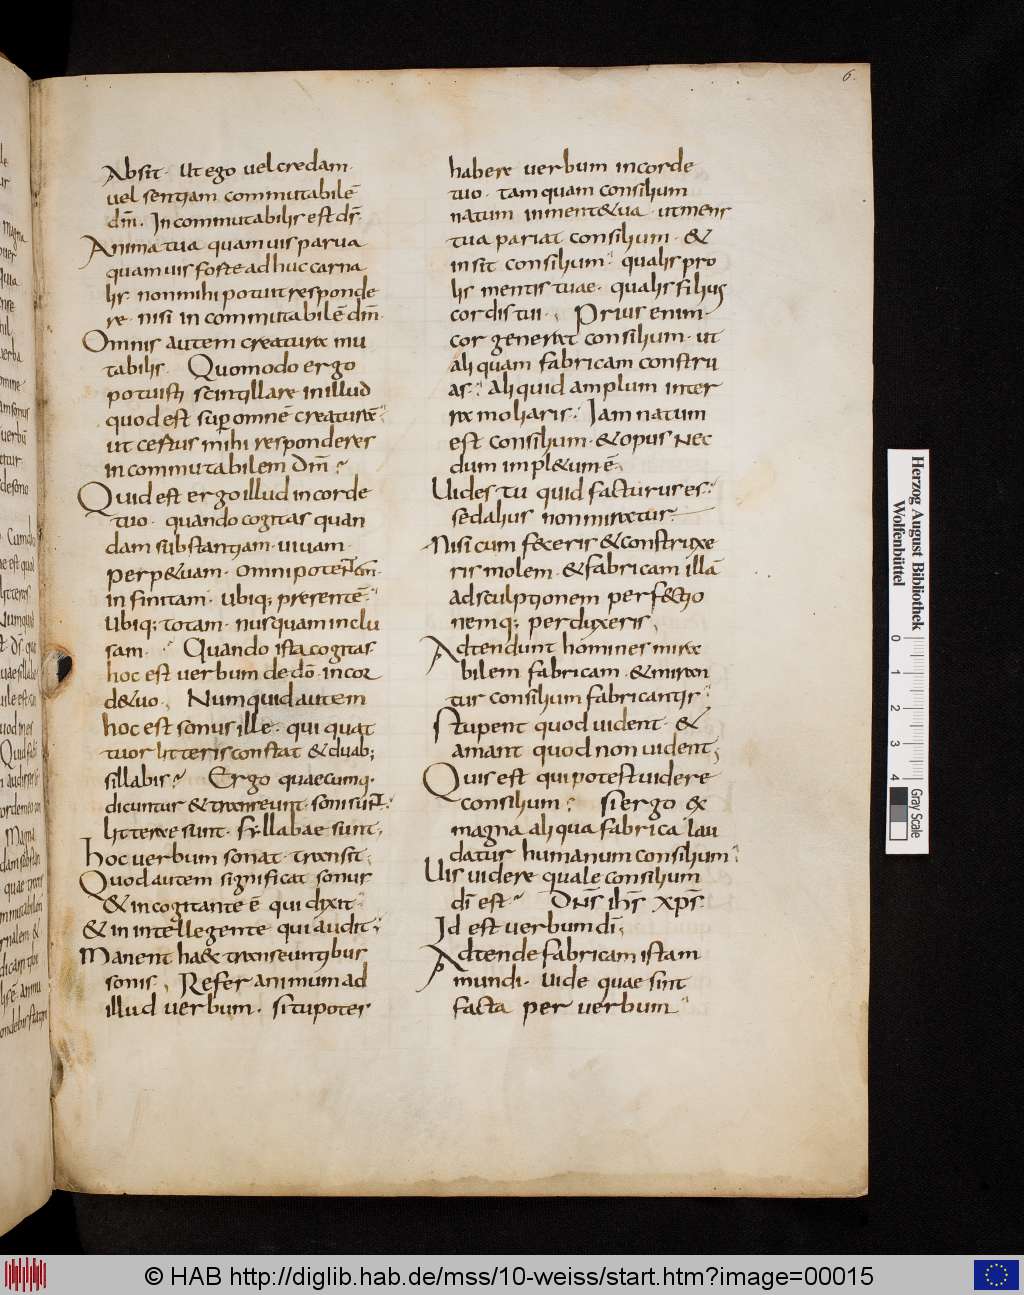 6.
Absit· Ut ego uel credam·
uel sentiam commutabilē
dm̄· Incommutabilis est ds̄·
Anima tua quamuis parua
quamuis forte adhuc carna
lis· non mihi potuit responde
re· nisi incommutabilē dm̄·
Omnis autem creatura mu
tabilis· Quomodo ergo
potuisti scintillare in illud
quod est suꝑ omnē creaturā·
ut certus mihi responderes
incommutabilem dm̄?
Quid est ergo illud in corde
tuo· quando cogitas quan
dam substantiam· uiuam·
perp&uam· omnipotentem·
infinitam· Ubiq; presentē·
Ubiq; totam· nusquam inclu
sam· Quando ista cogitas
hoc est uerbum de dō· in cor
d& uo· Numquid autem
hoc est sonus ille· qui quat
tuor litteris constat & duab;
sillabis? Ergo quaecumq·
dicuntur & transeunt· soni sunt·
litterae sunt· syllabae sunt;
hoc uerbum sonat· transit;
Quod autem significat sonus
& in cogitante ē· qui dixit·
& in intellegente qui audit;
Manent ha& transeuntibus
sonis· Refer animum ad
illud uerbum· si tu potes
habere uerbum in corde
tuo· tamquam consilium
natum in ment& ua· ut mens
tua pariat consilium· &
insit consilium· qualis pro
lis mentis tuae· qualis filius
cordis tui· Prius enim·
cor generat consilium· ut
aliquam fabricam constru
as· aliquid amplum inter
ra moliaris· Iam natum
est consilium· & opus nec
dum impl&um ē·
Uides tu quid facturus es·
sed alius non miratur·
Nisi cum feceris & construxe
ris molem· & fabricam illā
ad sculptionem perfectio
nemq; perduxeris·
Adtendunt homines mira
bilem fabricam· & miran
tur consilium fabricantis·
Stupent quod uident· &
amant quod non uident;
Quis est qui potest uidere
consilium? Si ergo ex
magna aliqua fabrica lau
datur humanum consilium·
Uis uidere quale consilium
dī est? Dns̄ ihs̄ xps̄·
Id est uerbum dī·
Adtende fabricam istam
mundi· Uide quae sint
facta per uerbum·
Herzog August Bibliothek
Wolfenbüttel
0 1 2 3 4
Gray Scale
© HAB http://diglib.hab.de/mss/10-weiss/start.htm?image=00015